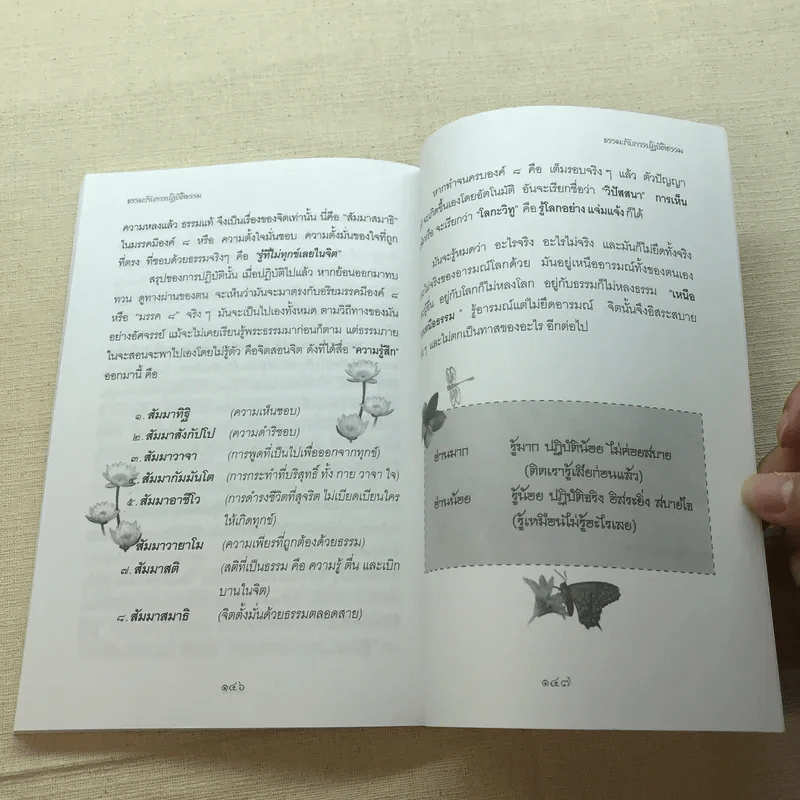 ธรรมะกับการปฏิบัติธรรม
ความหลงแล้ว ธรรมแท้ จึงเป็นเรื่องของจิตเท่านั้น นี่คือ "สัมมาสมาธิ"
ในมรรคมีองค์ ๘ หรือ ความตั้งใจมั่นชอบ ความตั้งมั่นของใจที่ถูก
ที่ตรง ที่ชอบด้วยธรรมจริงๆ คือ "รู้ที่ไม่ทุกข์เลยในจิต"
สรุปของการปฏิบัตินั้น เมื่อปฏิบัติไปแล้ว หากย้อนออกมาทบ
ทวน ดูทางผ่านของตน จะเห็นว่ามันจะมาตรงกับอริยมรรคมีองค์ ๘
หรือ "มรรค ๘" จริงๆ มันจะเป็นไปเองทั้งหมด ตามวิถีทางของมัน
อย่างอัศจรรย์ แม้จะไม่เคยเรียนรู้พระธรรมมาก่อนก็ตาม แต่ธรรมภาย
ในจะสอนจะพาไปเองโดยไม่รู้ตัว คือจิตสอนจิต ดังที่ได้สื่อ "ความรู้สึก"
ออกมานี้ คือ
๑. สัมมาทิฐิ (ความเห็นชอบ)
๒. สัมมาสังกัปโป (ความดำริชอบ)
๓. สัมมาวาจา (การพูดที่เป็นไปเพื่อออกจากทุกข์)
๔. สัมมากัมมันโต (การกระทำที่บริสุทธิ์ ทั้ง กาย วาจา ใจ)
๕. สัมมาอาชีโว (การดำรงชีวิตที่สุจริต ไม่เบียดเบียนใคร
ให้เกิดทุกข์)
สัมมาวายาโม (ความเพียรที่ถูกต้องด้วยธรรม)
๗. สัมมาสติ (สติที่เป็นธรรม คือ ความรู้ ตื่น และเบิก
บานในจิต)
๘. สัมมาสมาธิ (จิตตั้งมั่นด้วยธรรมตลอดสาย)
๑๔๖
ธรรมะกับการปฏิบัติธรรม
หากทำจนครบองค์ ๘ คือ เต็มรอบจริงๆ แล้ว ตัวปัญญา
จะเกิดขึ้นเองโดยอัตโนมัติ อันจะเรียกชื่อว่า "วิปัสสนา" การเห็น
หรือ จะเรียกว่า "โลกะวิทู" คือ รู้โลกอย่าง แจ่มแจ้ง ก็ได้
มันจะรู้หมดว่า อะไรจริง อะไรไม่จริง และมันก็ไม่ยึดทั้งจริง
ไม่จริงของอารมณ์โลกด้วย มันอยู่เหนืออารมณ์ทั้งของตนเอง
อยู่กับโลกก็ไม่หลงโลก อยู่กับธรรมก็ไม่หลงธรรม "เหนือ
เหนือธรรม" รู้อารมณ์แต่ไม่ยึดอารมณ์ จิตนั้นจึงอิสระสบาย
และไม่ตกเป็นทาสของอะไร อีกต่อไป
อ่านมาก รู้มาก ปฏิบัติน้อย ไม่ค่อยสบาย
(ติดเรารู้เสียก่อนแล้ว)
อ่านน้อย รู้น้อย ปฏิบัติจริง อิสระยิ่ง สบายใจ
(รู้เหมือนไม่รู้อะไรเลย)
๑๔๗